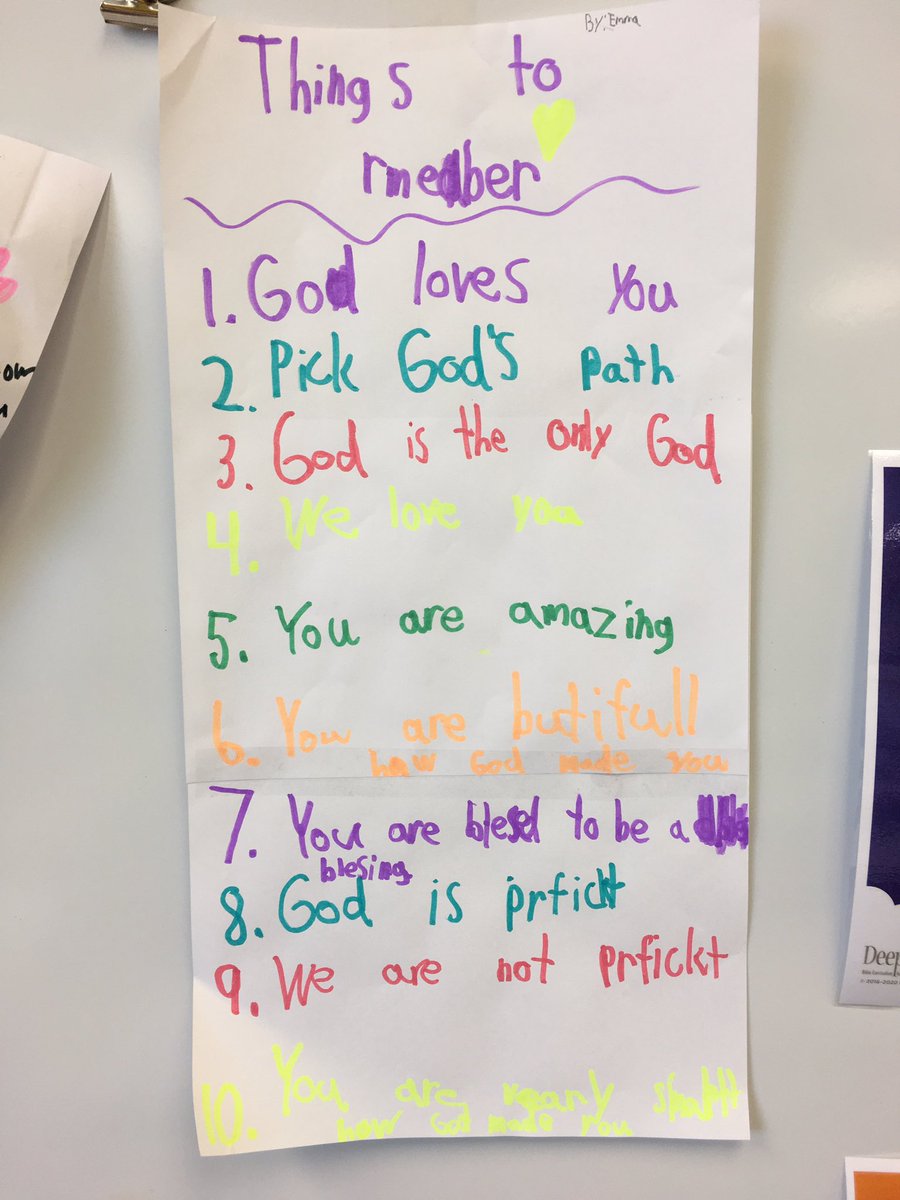 BY: Emma
Things to
rmedber
1. God loves you
2. Pick God's path
3. God is the only God
4. We love you
5. You are amazing
6. You are butifull
haw God made you
7. You are blesed to be a
blesing
8. God is prfickt
9. We are not prfickt
10. You are
how God made you
Deep
2016-2020